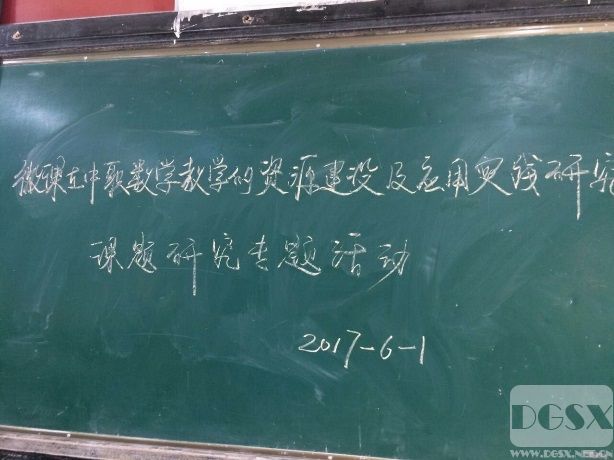 微课在中职数学教学的资源建设及应用实践研究
课题研究专题活动
2017-6-1
DGSX
WWW.DGSX.NET.CN